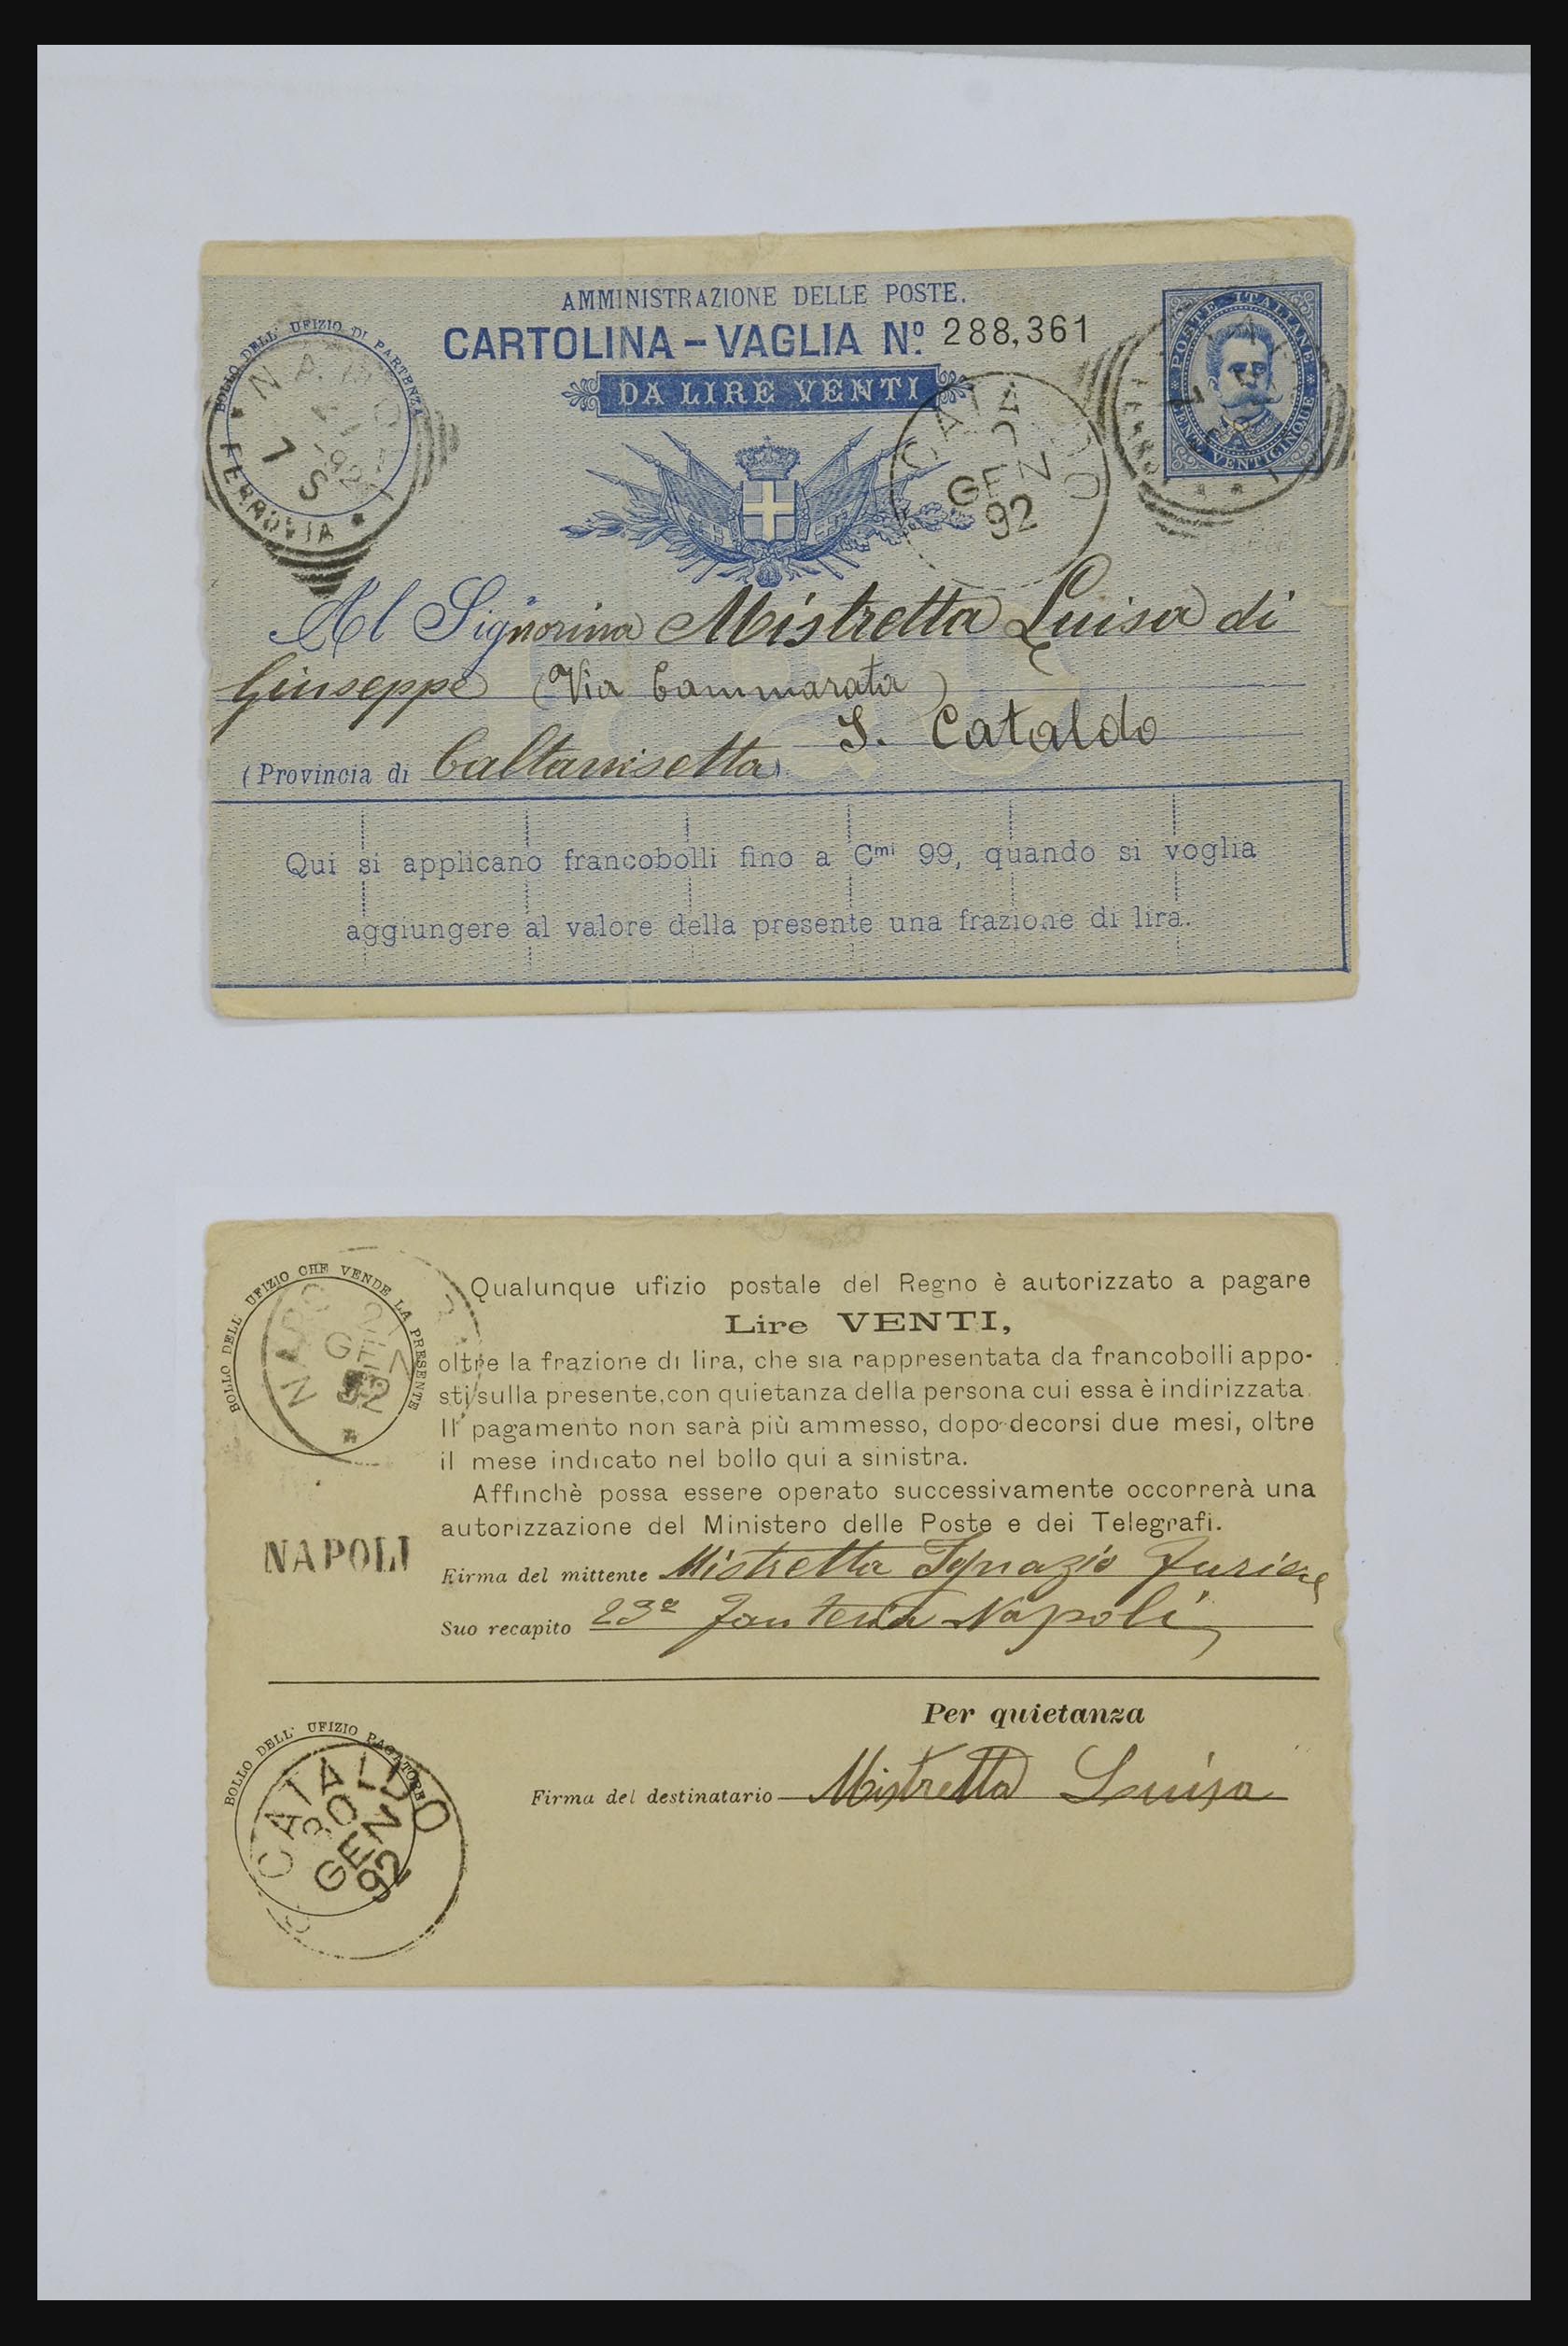 AMMINISTRAZIONE DELLE POSTE.
CARTOLINA-VAGLIA Nº. 288,361
DA LIRE VENTI
BOLLO DELL' UFIZIO DI PARTENZA
FERROVIA
92
7 S
GEN
92
POSTE ITALIANE
VENTICINQUE
Al Signorina Mistretta Luisa di
Giuseppe (Via Cammarata)
S. Cataldo
(Provincia di Caltanisetta)
Qui si applicano francobolli fino a Cmi 99, quando si voglia
aggiungere al valore della presente una frazione di lira.
BOLLO DELL' UFIZIO CHE VENDE LA PRESENTE
GEN
92
Qualunque ufizio postale del Regno è autorizzato a pagare
Lire VENTI,
oltre la frazione di lira, che sia rappresentata da francobolli appo-
sti sulla presente, con quietanza della persona cui essa è indirizzata.
Il pagamento non sarà più ammesso, dopo decorsi due mesi, oltre
il mese indicato nel bollo qui a sinistra.
Affinchè possa essere operato successivamente occorrerà una
autorizzazione del Ministero delle Poste e dei Telegrafi.
NAPOLI
Firma del mittente Mistretta Ignazio
Suo recapito 23º Fanteria Napoli
Per quietanza
BOLLO DELL' UFIZIO PAGATORE
CATALDO
30
GEN
92
Firma del destinatario Mistretta Luisa